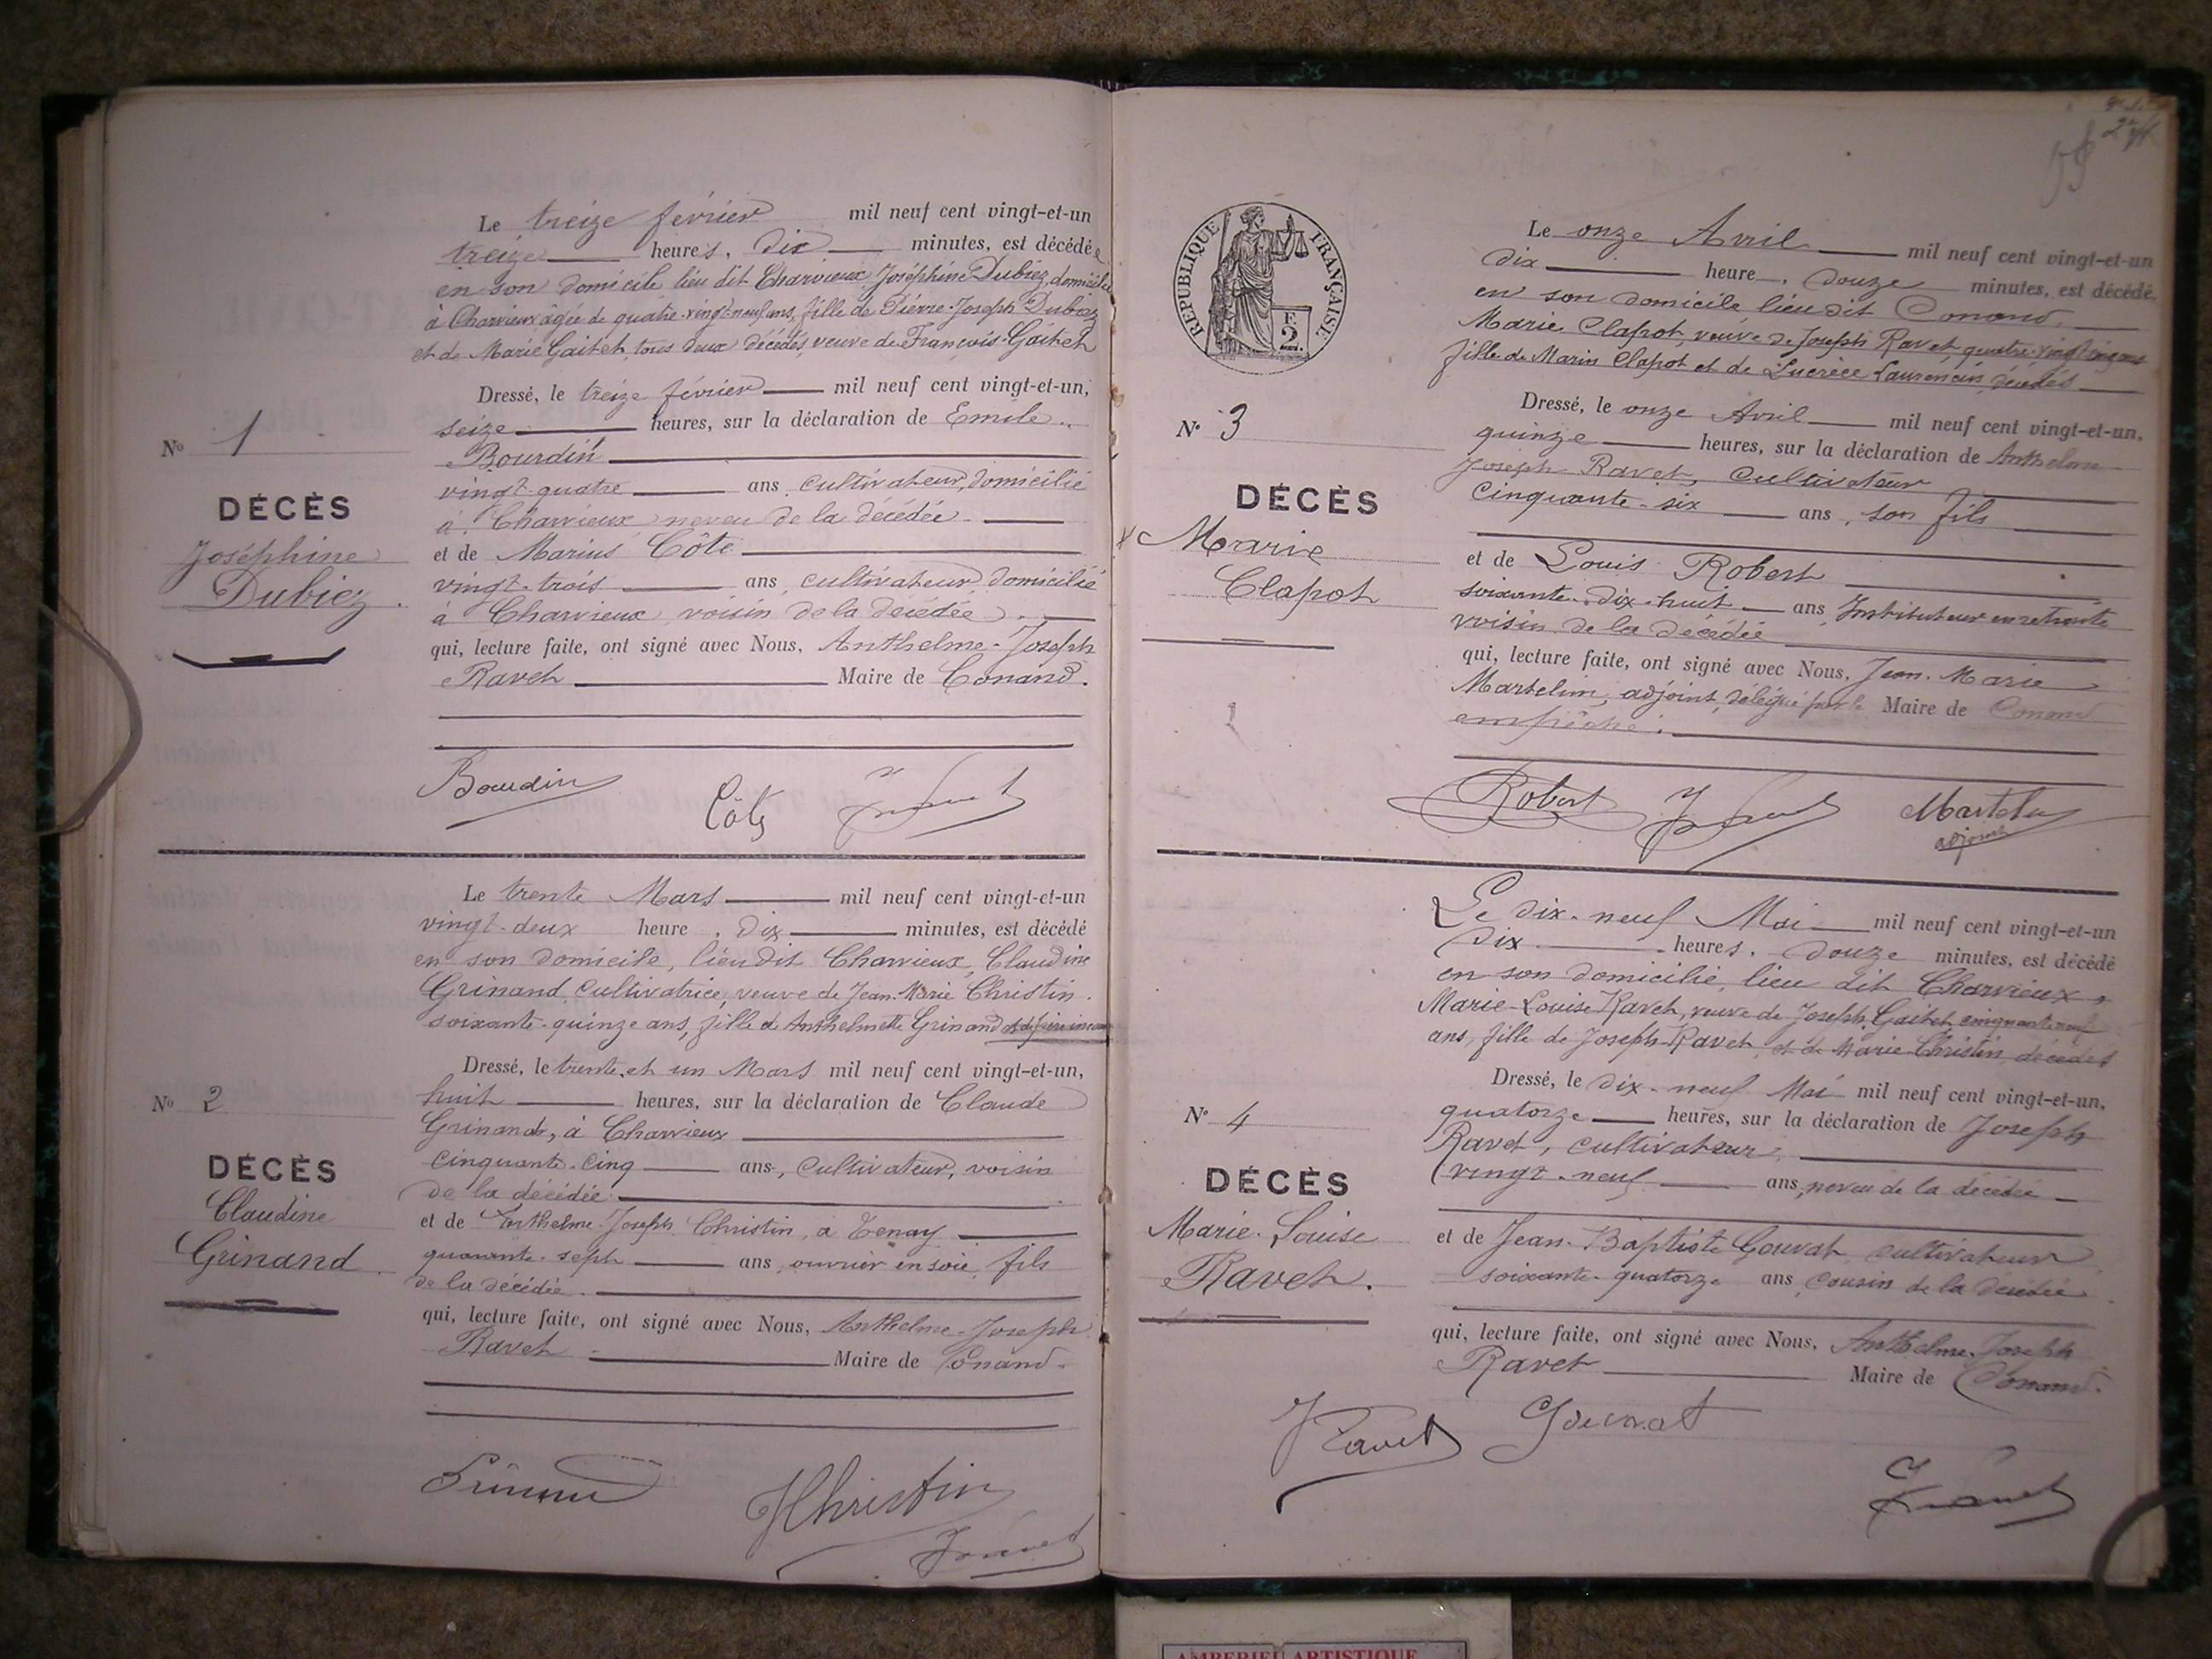 Le treize février mil neuf cent vingt-et-un
treize heures, dix minutes, est décédée
en son domicile lieu dit Charvieux Joséphine Dubiez, domiciliée
à Charvieux âgée de quatre-vingt-neuf ans, fille de Pierre-Joseph Dubiez
et de Marie Gaitet tous deux décédés, veuve de François Gaitet
Dressé, le treize février mil neuf cent vingt-et-un,
seize heures, sur la déclaration de Emile
Bourdin
vingt-quatre ans, cultivateur, domicilié
à Charvieux neveu de la décédée.
et de Marius Côte
vingt-trois ans, cultivateur, domicilié
à Charvieux voisin de la décédée.
qui, lecture faite, ont signé avec Nous, Anthelme-Joseph
Ravet Maire de Conand.
No 1
DÉCÈS
Joséphine
Dubiez.
Bourdin
Côte
Le trente Mars mil neuf cent vingt-et-un
vingt-deux heure, dix minutes, est décédé
en son domicile, lieu dit Charvieux, Claudine
Grinand, cultivatrice, veuve de Jean-Marie Christin.
soixante-quinze ans, fille de Anthelmette Grinand
Dressé, le trente et un Mars mil neuf cent vingt-et-un,
huit heures, sur la déclaration de Claude
Grinand, à Charvieux
cinquante-cinq ans, cultivateur, voisin
de la décédée
et de Anthelme-Joseph Christin, à Tenay
quarante-sept ans, ouvrier en soie, fils
de la décédée.
qui, lecture faite, ont signé avec Nous, Anthelme-Joseph
Ravet Maire de Conand.
No 2
DÉCÈS
Claudine
Grinand.
JChristin
RÉPUBLIQUE FRANÇAISE
2
Le onze Avril mil neuf cent vingt-et-un
dix heure, douze minutes, est décédé
en son domicile, lieu dit Conand.
Marie Clapot, veuve de Joseph Ravet, quatre-vingt-cinq ans
fille de Marin Clapot et de Lucrèce Laurencin, décédés
Dressé, le onze Avril mil neuf cent vingt-et-un,
quinze heures, sur la déclaration de Anthelme
Joseph Ravet, cultivateur
cinquante-six ans, son fils
et de Louis Robert
soixante-dix-huit ans, Instituteur en retraite
voisin de la décédée
qui, lecture faite, ont signé avec Nous, Jean-Marie
Martelin, adjoint, délégué par le Maire de Conand
empêché.
N° 3
DÉCÈS
Marie
Clapot
Robert
Martelin
adjoint
Le dix-neuf Mai mil neuf cent vingt-et-un
dix heures, douze minutes, est décédé
en son domicilie, lieu dit Charvieux,
Marie-Louise Ravet, veuve de Joseph Gaitet, cinquante neuf
ans, fille de Joseph Ravet, et de Marie Christin, décédés
Dressé, le dix-neuf Mai mil neuf cent vingt-et-un,
quatorze heures, sur la déclaration de Joseph
Ravet, cultivateur,
vingt-neuf ans, neveu de la décédée
et de Jean-Baptiste Gouvat, cultivateur
soixante-quatorze ans, cousin de la décédée
qui, lecture faite, ont signé avec Nous, Anthelme-Joseph
Ravet Maire de Conand.
N° 4
DÉCÈS
Marie-Louise
Ravet.
JRavet
AMBERIEU ARTISTIQUE